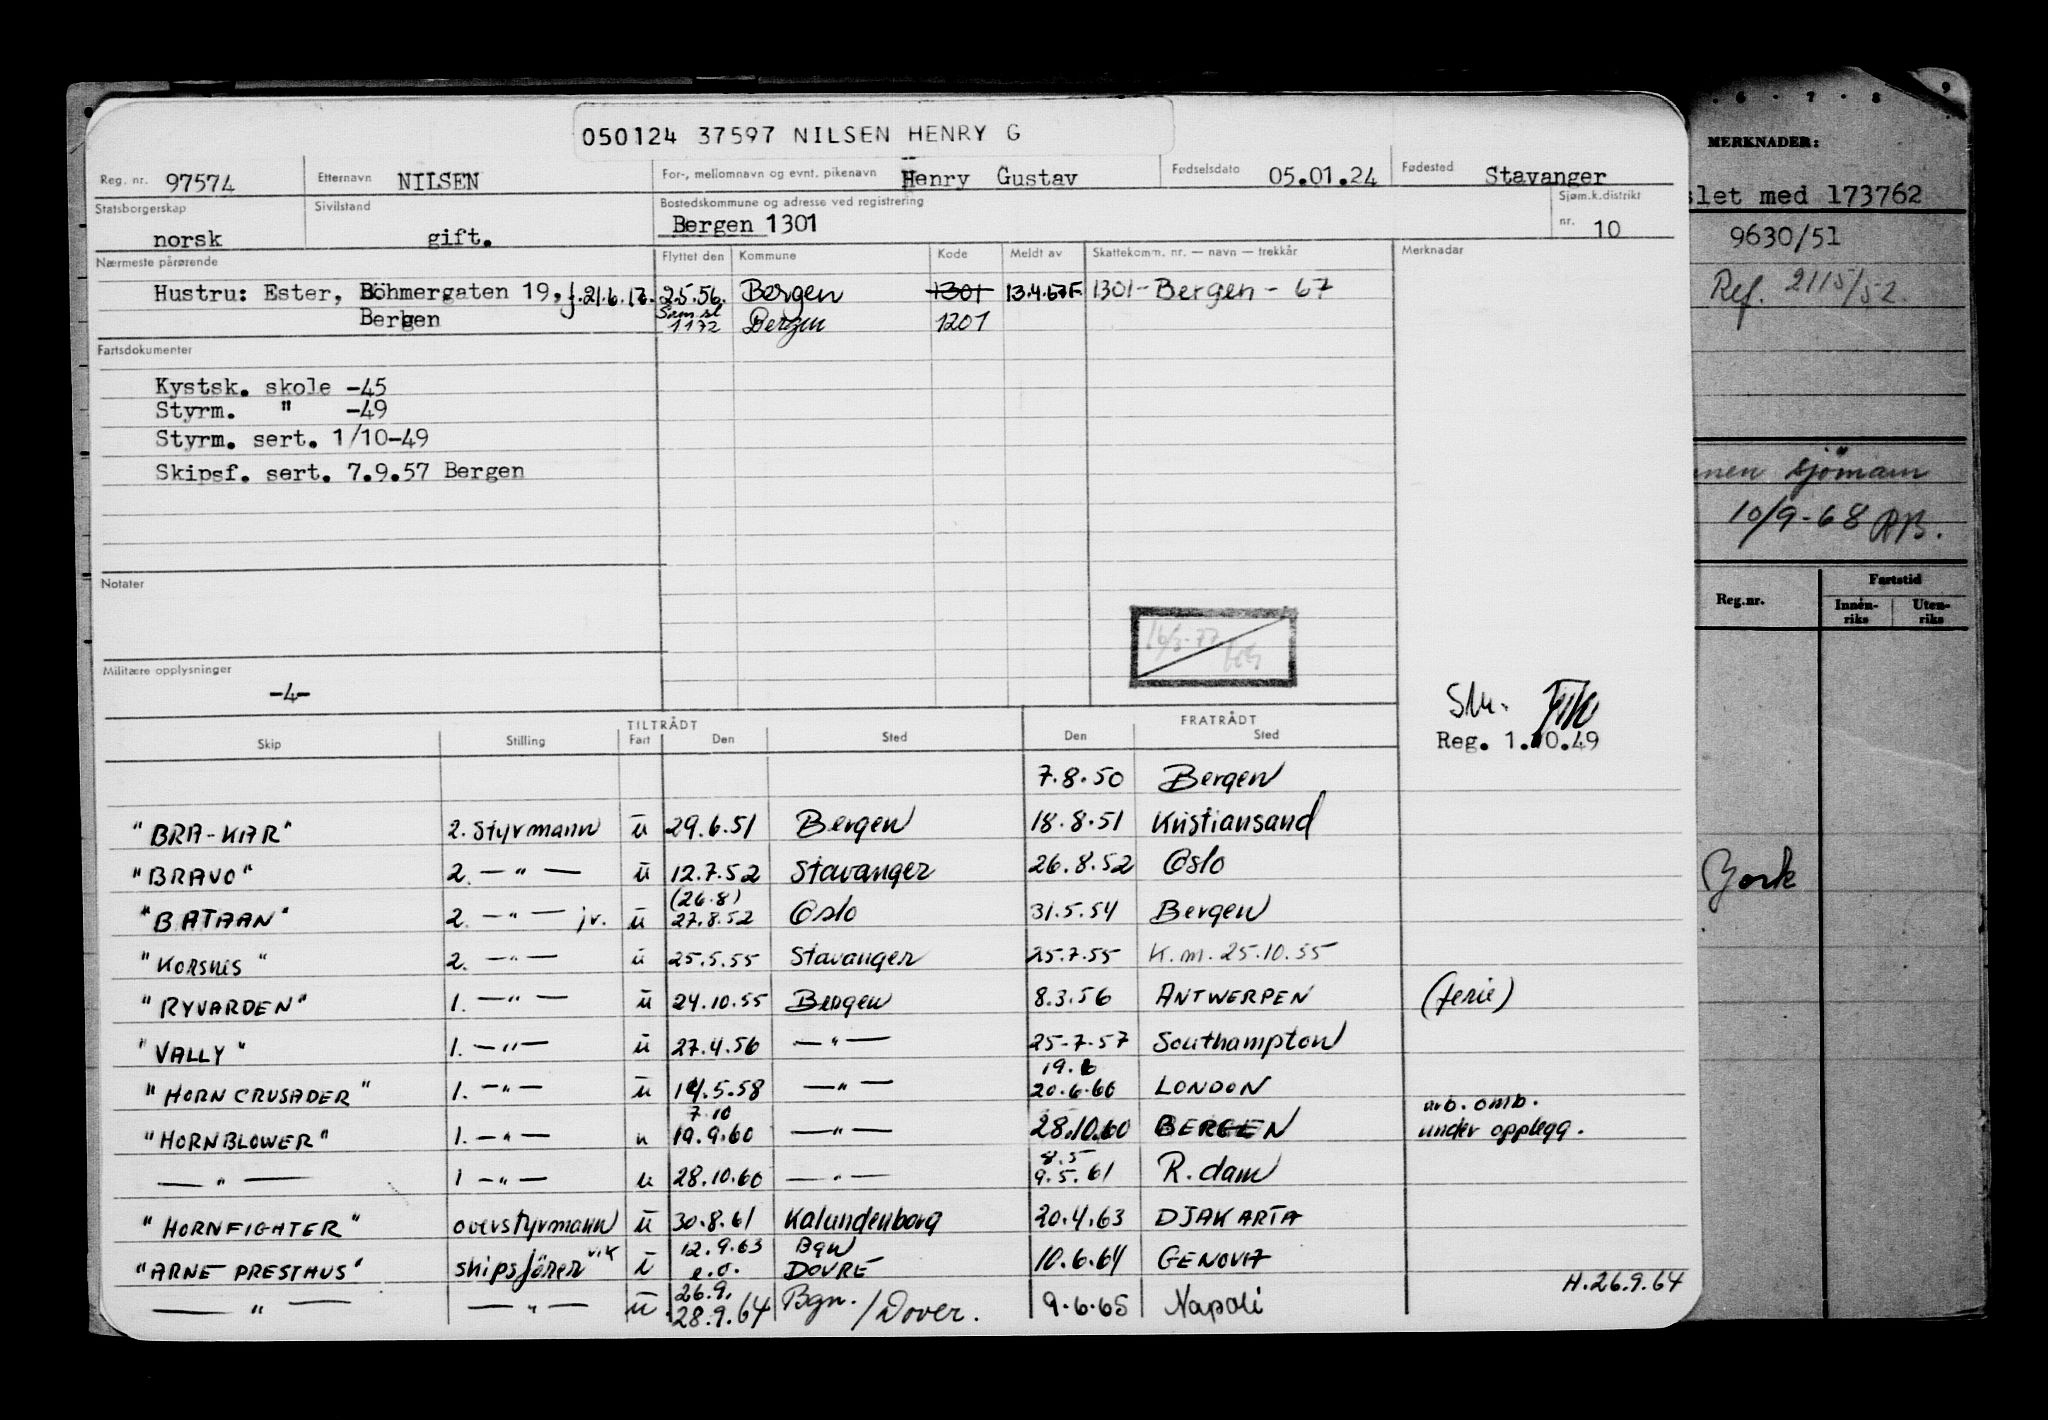 050124 37597 NILSEN HENRY G
Reg. nr. 97574 Etternavn NILSEN For-, mellomnavn og evnt. pikenavn Henry Gustav Fødselsdato 05.01.24 Fødested Stavanger
Statsborgerskap norsk Sivilstand gift. Bostedskommune og adresse ved registrering Bergen 1301 Sjøm.k.distrikt nr. 10
Nærmeste pårørende Flyttet den Kommune Kode Meldt av Skattekomm. nr. — navn — trekkår Merknadar
Hustru: Ester, Böhmergaten 19, f. 21.6.17. 2.5.56. Bergen 1301 13.4.67F 1301 - Bergen - 67
Bergen 1172 Bergen 1201
Fartsdokumenter
Kystsk. skole -45
Styrm. " -49
Styrm. sert. 1/10-49
Skipsf. sert. 7.9.57 Bergen
Notater
Militære opplysninger
-4-
Reg. 1.10.49
TILTRÅDT FRATRÅDT
Skip Stilling Fart Den Sted Den Sted
7.8.50 Bergen
"BRA-KAR" 2. Styrmann u 29.6.51 Bergen 18.8.51 Kristiansand
"BRAVO" 2. — " — u 12.7.52 Stavanger 26.8.52 Oslo
(26.8)
"BATAAN" 2. — " — jr. u 27.8.52 Oslo 31.5.54 Bergen
"KORSNES" 2. — " — u 25.5.55 Stavanger 25.7.55 K.m. 25.10.55
"RYVARDEN" 1. — " — u 24.10.55 Bergen 8.3.56 ANTWERPEN (ferie)
"VALLY" 1. — " — u 27.4.56 — " — 25-7-57 Southampton
19.6
"HORN CRUSADER" 1. — " — u 14.5.58 — " — 20.6.60 LONDON
7.10 arb. omb.
"HORNBLOWER" 1. — " — u 19.9.60 — " — 28.10.60 BERGEN under opplegg.
8.5
— " — 1 — " — u 28.10.60 — " — 9.5.61 R.dam
"HORNFIGHTER" overstyrmann u 30.8.61 Kalundenborg 20.4.63 DJAKARTA
12.9.63 Bgn
"ARNE PRESTHUS" skipsfører vik u e.o. DOVRE 10.6.64 GENOVA
H.26.9.64
26.9. Bgn.
— " — — " — u 28.9.64 /Dover. 9.6.65 Napoli
6 · 7 · 8 · 9
MERKNADER:
slet med 173762
9630/51
Ref. 2115/52
nnen sjömann
10/9-68 RB.
Reg.nr. Fartstid
Innen-riks Uten-riks
York